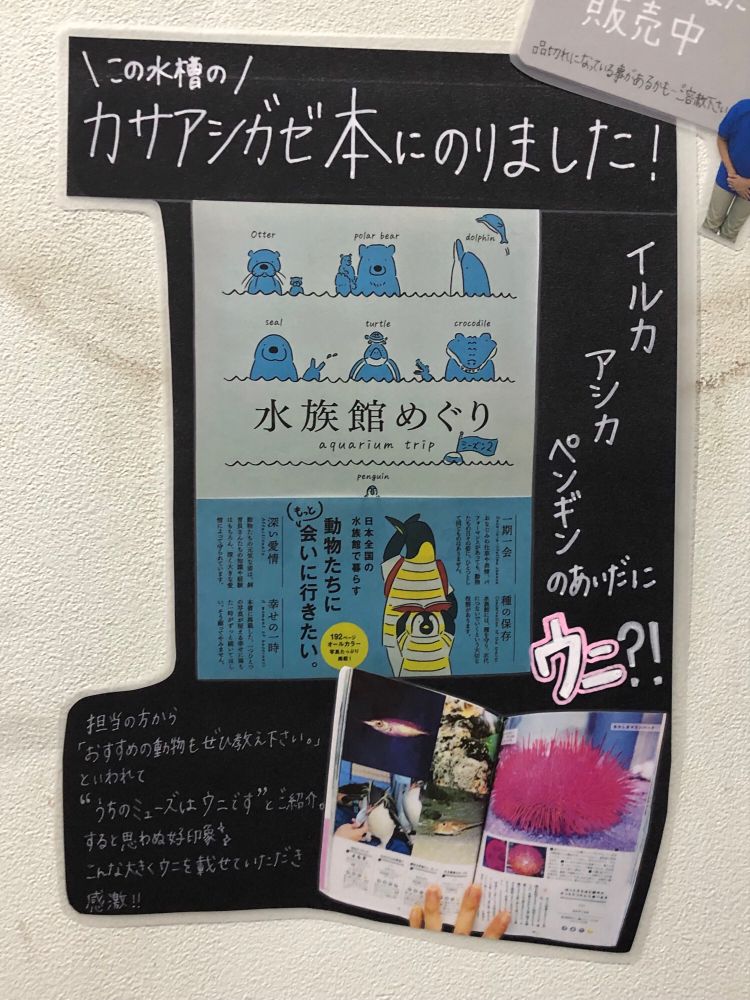 販売中
品切れになっている事があるかも…ご容赦下さい
\この水槽の/
カサアシガゼ本にのりました!
Otter
polar bear
dolphin
seal
turtle
crocodile
水族館めぐり
aquarium trip
シーズン2
penguin
日本全国の
水族館で暮らす
動物たちに
(もっと)
会いに行きたい。
一期一会
種の保存
深い愛情
幸せの一時
192ページ
オールカラー
写真たっぷり
掲載!
イルカ
アシカ
ペンギン
のあいだに
ウニ?!
担当の方から
「おすすめの動物もぜひ教え下さい。」
といわれて
“うちのミューズはウニです”とご紹介。
すると思わぬ好印象
こんな大きくウニを載せていただき
感激!!